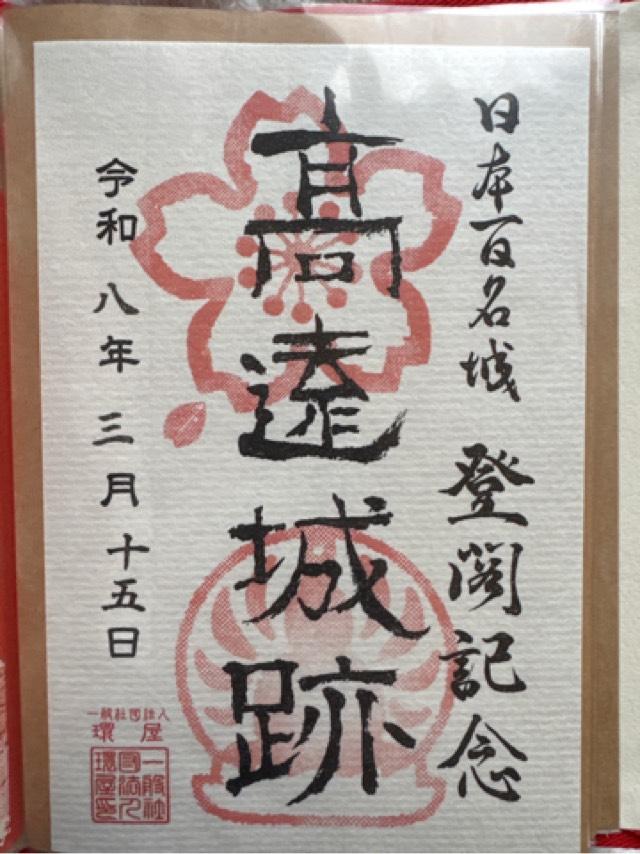 日本百名城 登閣記念
高遠城跡
令和 八年 三月 十五日
一般社団法人
環屋
一般社
団法人
環屋印